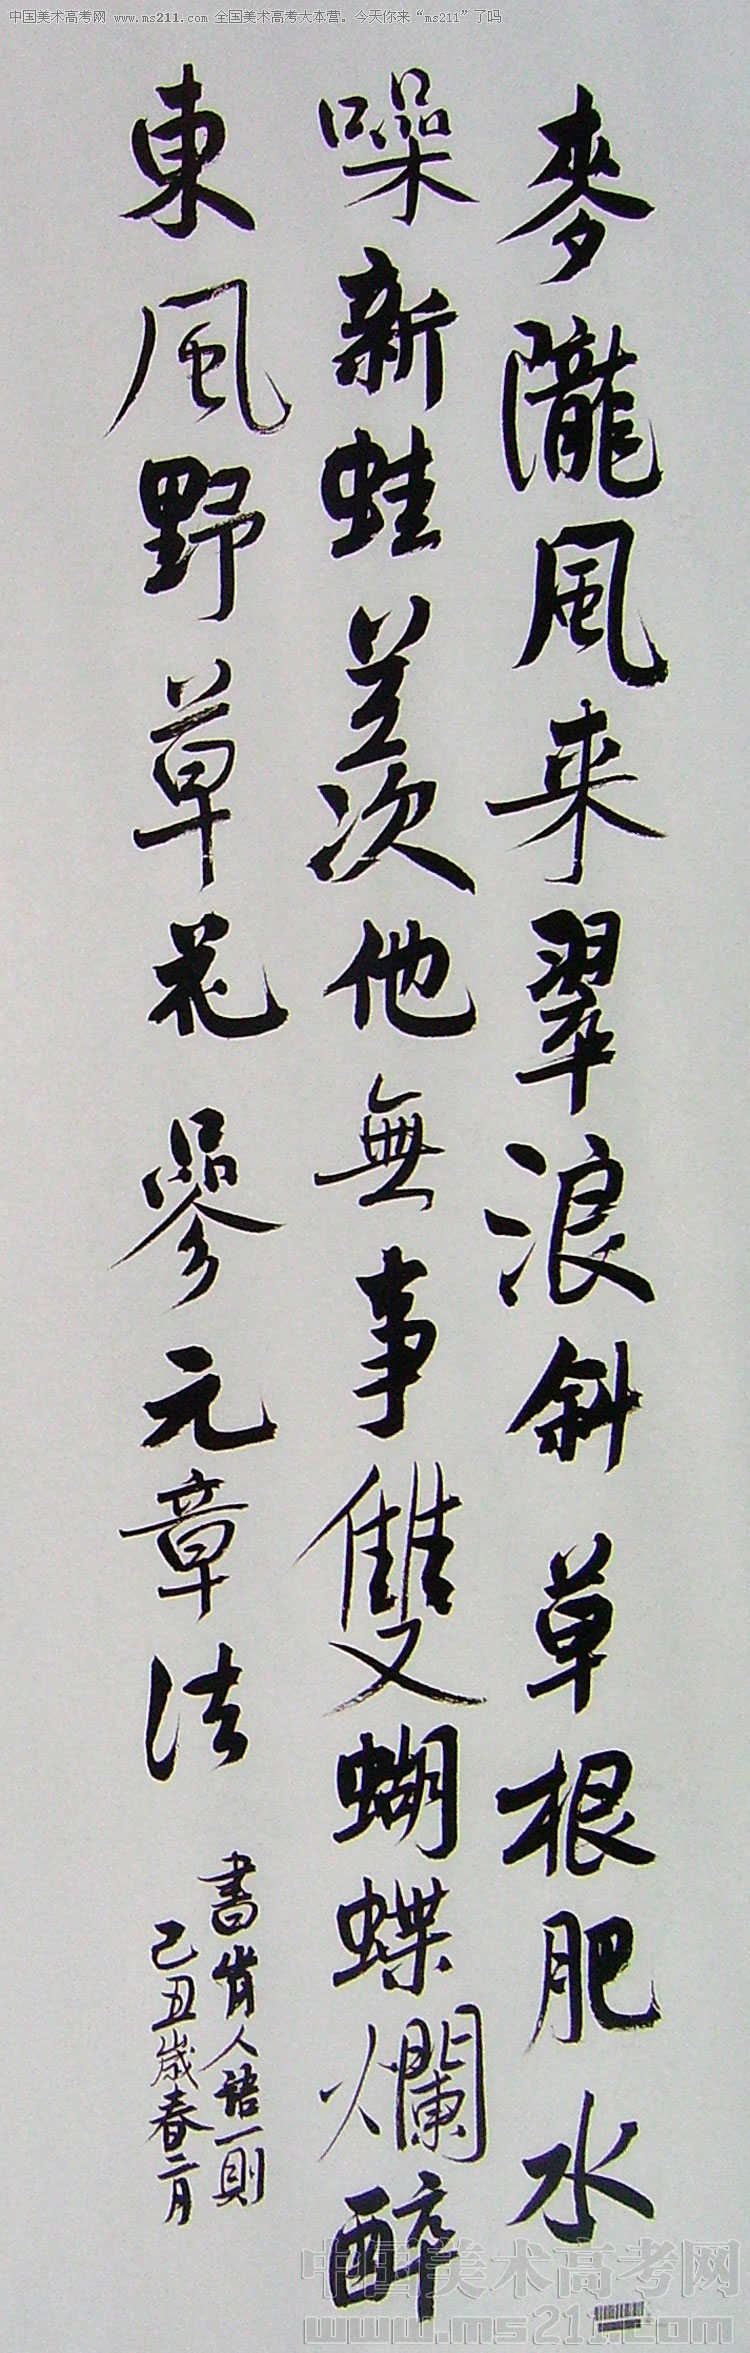 中国美术高考网 www.ms211.com 全国美术高考大本营。今天你来“ms211”了吗
麥隴風来翠浪斜草根肥水
噪新蛙羡他無事雙蝴蝶爛醉
東風野草花 參元章法
書肯人語一則
己丑歲春二月
中国美术高考网
www.ms211.com